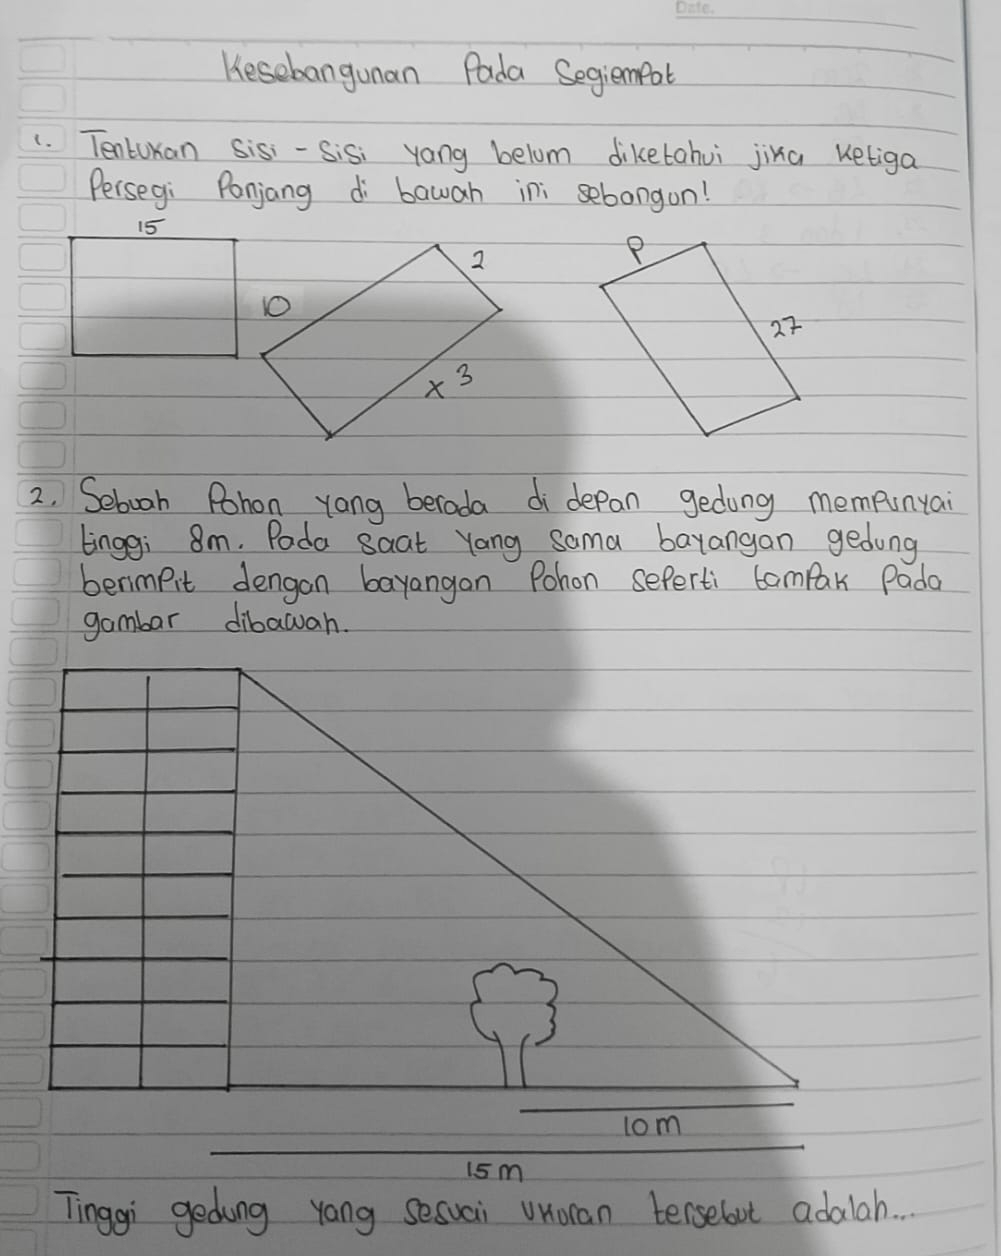 Date.
Kesebangunan Pada Segiempat
1. Tentukan sisi - sisi yang belum diketahui jika ketiga
Persegi Panjang di bawah ini sebangun!
15
10
2
x 3
P
27
2. Sebuah Pohon yang berada di depan gedung mempunyai
tinggi 8m. Pada saat yang sama bayangan gedung
berimpit dengan bayangan Pohon seperti tampak Pada
gambar dibawah.
10 m
15 m
Tinggi gedung yang sesuai ukuran tersebut adalah...